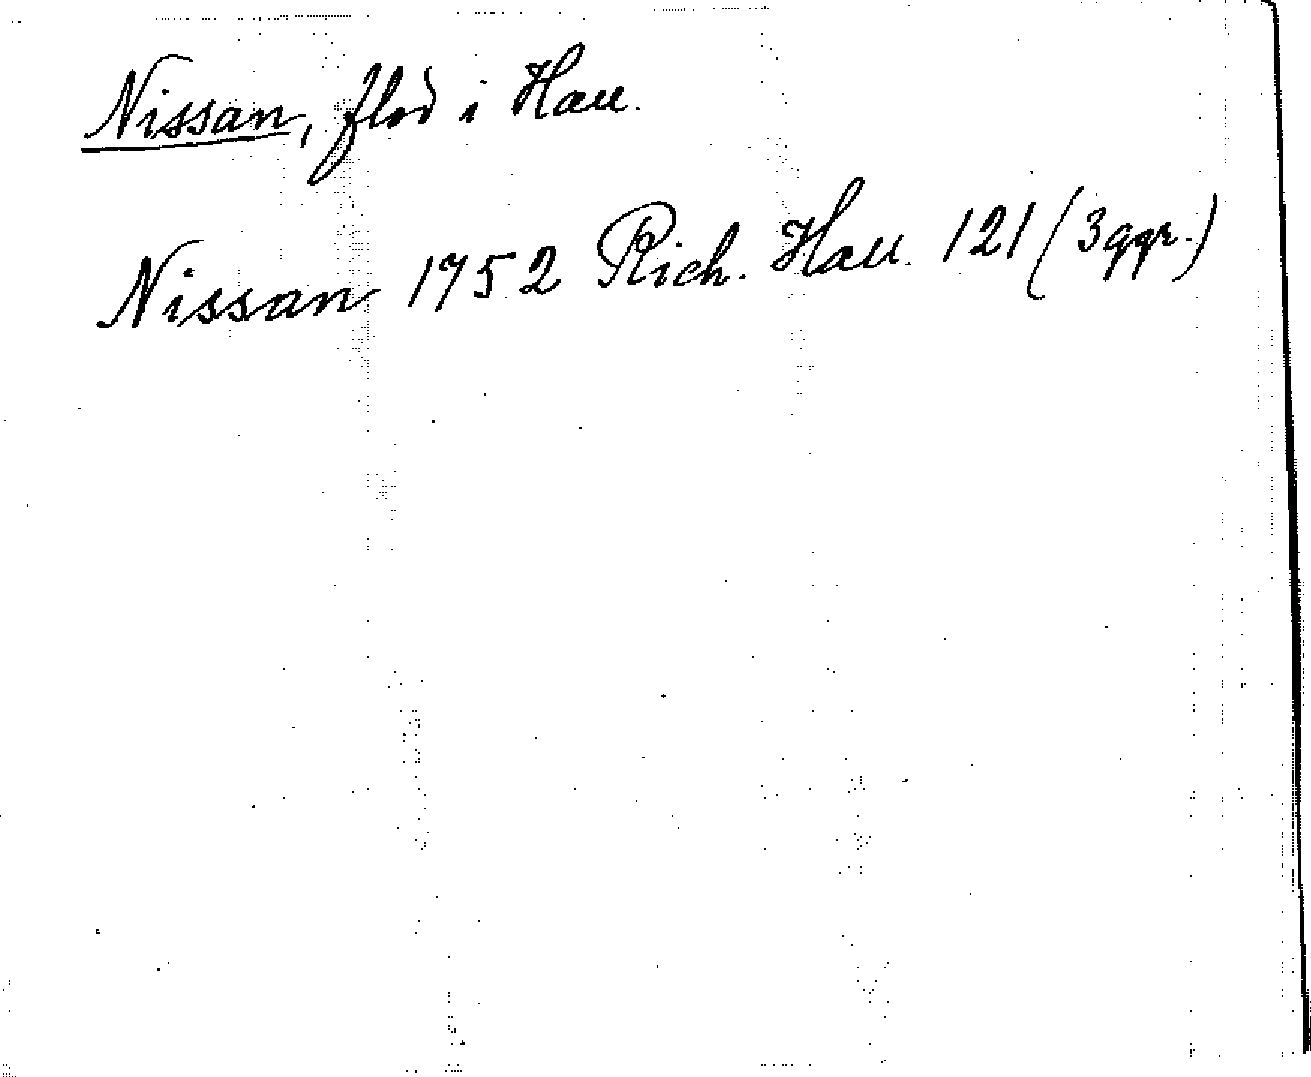 Nissan, flod i Hall.
Nissan 1752 Rich. Hall. 121 (3 ggr.)